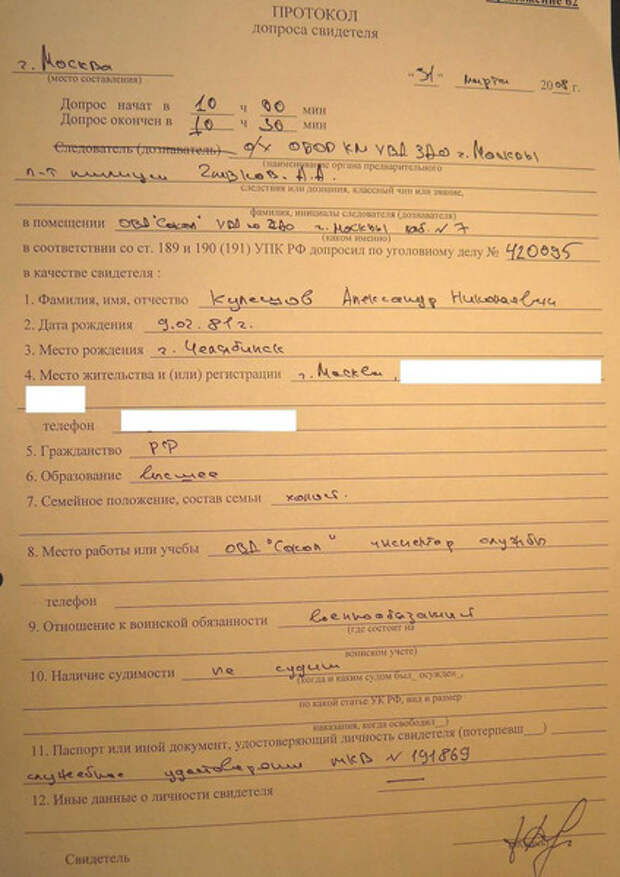 Приложение 62
ПРОТОКОЛ
допроса свидетеля
г. Москва
(место составления)
"31" марта 2008 г.
Допрос начат в 10 ч 00 мин
Допрос окончен в 10 ч 30 мин
Следователь (дознаватель) о/у ОБОР КМ УВД ЗАО г. Москвы
(наименование органа предварительного
л-т милиции А.А.
следствия или дознания, классный чин или звание,
фамилия, инициалы следователя (дознавателя)
в помещении ОВД "Сокол" УВД по г. Москвы каб. N 7
(каком именно)
в соответствии со ст. 189 и 190 (191) УПК РФ допросил по уголовному делу № 420095
в качестве свидетеля :
1. Фамилия, имя, отчество Кулешов Александр Николаевич
2. Дата рождения 9.02.81г.
3. Место рождения г. Челябинск
4. Место жительства и (или) регистрации г. Москва,
телефон
5. Гражданство РФ
6. Образование высшее
7. Семейное положение, состав семьи холост.
8. Место работы или учебы ОВД "Сокол" инспектор службы
телефон
9. Отношение к воинской обязанности военнообязаный
(где состоит на
воинском учете)
10. Наличие судимости не судим
(когда и каким судом был_ осужден_,
по какой статье УК РФ, вид и размер
наказания, когда освободил__)
11. Паспорт или иной документ, удостоверяющий личность свидетеля (потерпевш___)
служебное удостоверение МКВ N 191869
12. Иные данные о личности свидетеля —
Свидетель